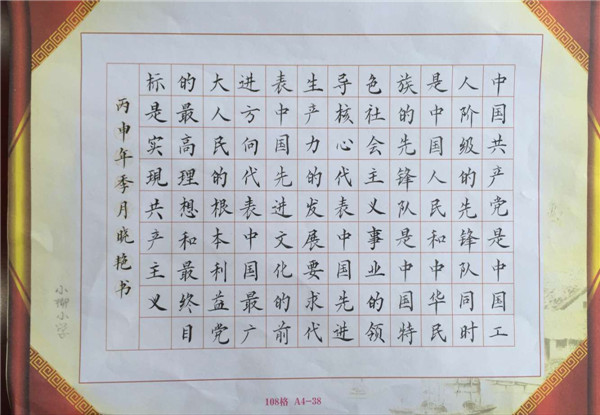 中国共产党是中国工
人阶级的先锋队同时
是中国人民和中华民
族的先锋队是中国特
色社会主义事业的领
导核心代表中国先进
生产力的发展要求代
表中国先进文化的前
进方向代表中国最广
大人民的根本利益党
的最高理想和最终目
标是实現共产主义
丙申年季月晓艳书
108格 A4-38